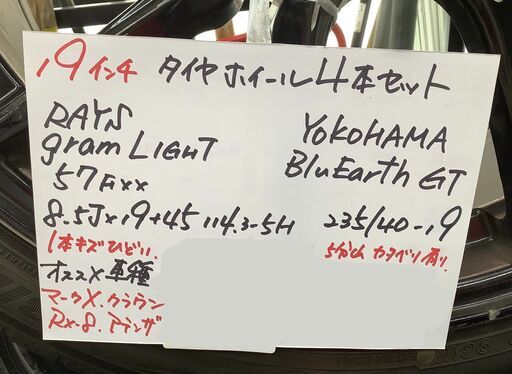 19インチ タイヤホイール4本セット
RAYS
gram LIGHT
57Fxx
8.5J×19+45 114.3-5H
1本キズひどい.
オススメ車種
マークX.クラウン
RX-8.アテンザ
YOKOHAMA
BluEarth GT
235/40-19
5分山 カタベリ有り.